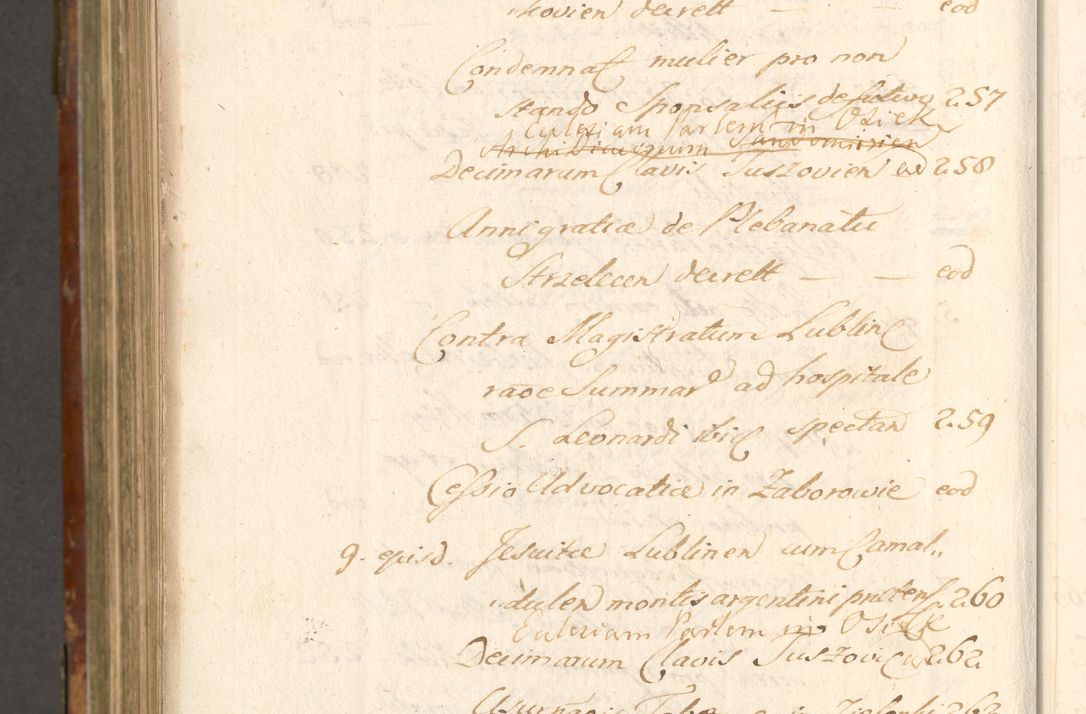 kovien decrett — — eod
Condemnat mulier pro non
stando Sponsaliis de futuro 257
Eccleriam Parlem in Osiek
Archidiaconum Sandomirien
Decimarum Clavis Suszovien eod 258
Anni gratiæ de Plebanatu
Strzelecen decrett — — eod
Contra Magistratum Lublin
raõe Summar ad hospitale
S. Leonardi ibid spectan 259
Cessio Advocatiæ in Zaborowie eod
9. ejusd. Jesuitæ Lublinen cum Camal„
„dulen montis argentini prætens 260
Eccleriam Parlem in Osiek
Decimarum Clavis Suszovien 262
in 263